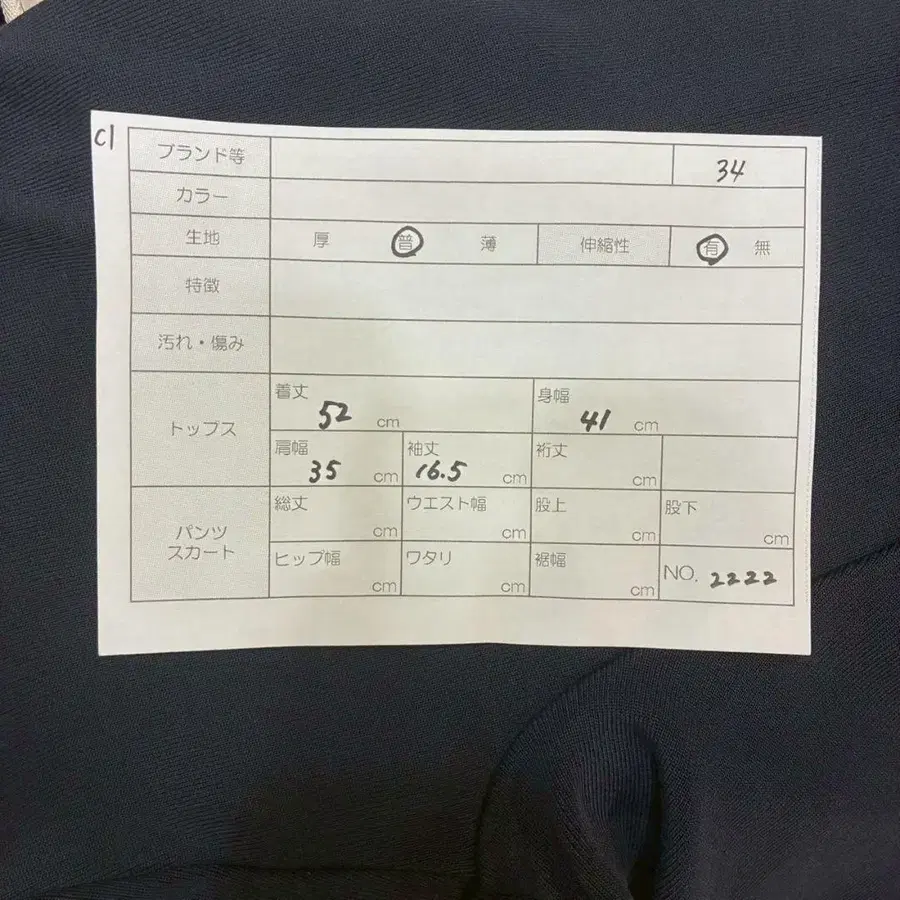 C1
ブランド等 34
カラー
生地 厚 普 薄 伸縮性 有 無
特徴
汚れ・傷み
トップス
着丈 52 cm 身幅 41 cm
肩幅 35 cm 袖丈 16.5 cm 裄丈 cm
パンツ
スカート
総丈 cm ウエスト幅 cm 股上 cm 股下 cm
ヒップ幅 cm ワタリ cm 裾幅 cm NO. 2222